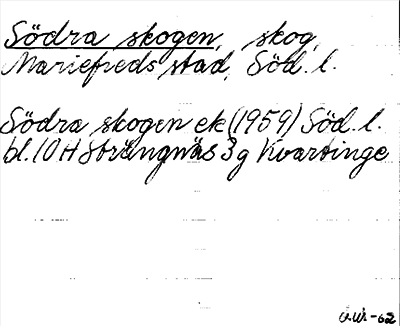 Södra skogen, skog,
Mariefreds stad, Söd. l.
Södra skogen ek (1959) Söd. l.
bl. 10 H Strängnäs 3g Kvartinge
G.W. -62